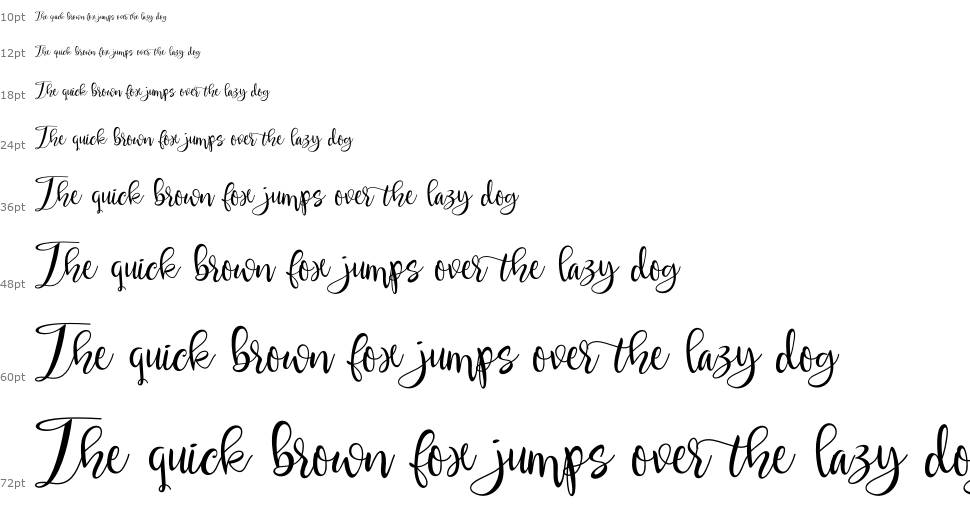 10pt The quick brown fox jumps over the lazy dog
12pt The quick brown fox jumps over the lazy dog
18pt The quick brown fox jumps over the lazy dog
24pt The quick brown fox jumps over the lazy dog
36pt The quick brown fox jumps over the lazy dog
48pt The quick brown fox jumps over the lazy dog
60pt The quick brown fox jumps over the lazy dog
72pt The quick brown fox jumps over the lazy do